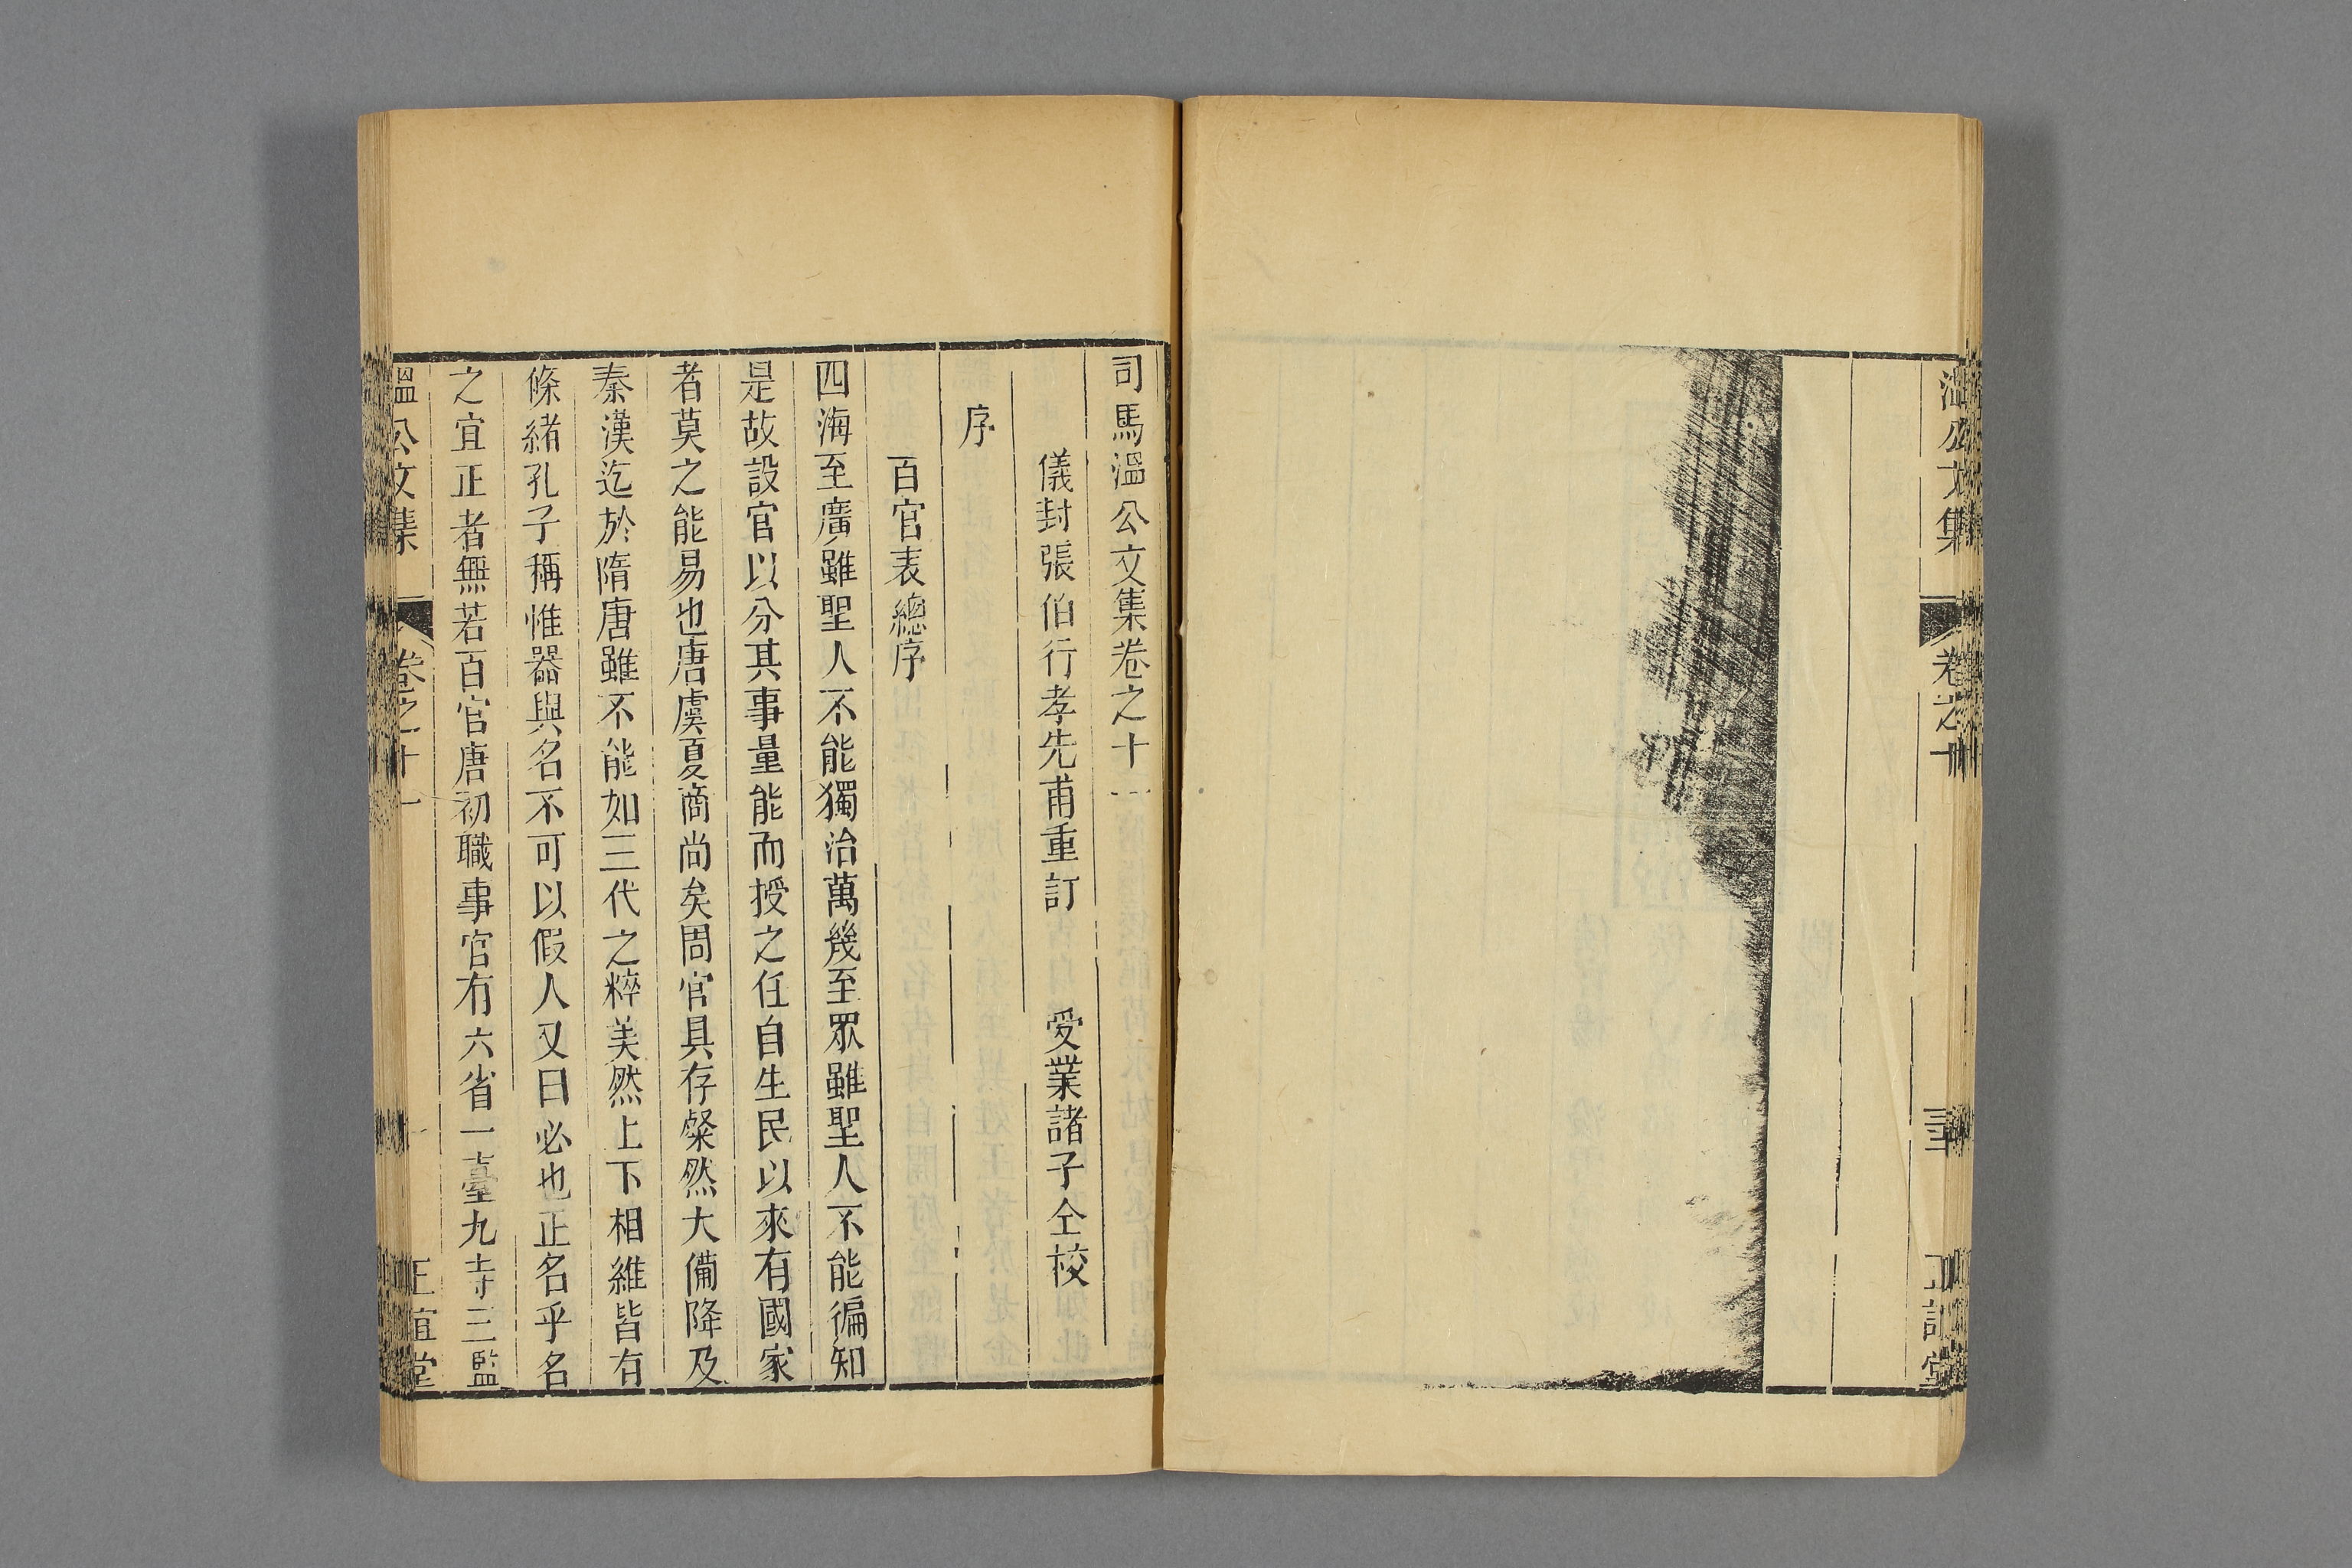 溫公文集 卷之十 正誼堂
司馬溫公文集卷之十一
儀封張伯行孝先甫重訂 受業諸子仝校
序
百官表總序
四海至廣雖聖人不能獨治萬幾至眾雖聖人不能徧知
是故設官以分其事量能而授之任自生民以來有國家
者莫之能易也唐虞夏商尚矣周官具存粲然大備降及
秦漢迄於隋唐雖不能如三代之粹美然上下相維皆有
條緒孔子稱惟器與名不可以假人又曰必也正名乎名
之宜正者無若百官唐初職事官有六省一臺九寺三監
溫公文集 卷之十一 一 正誼堂